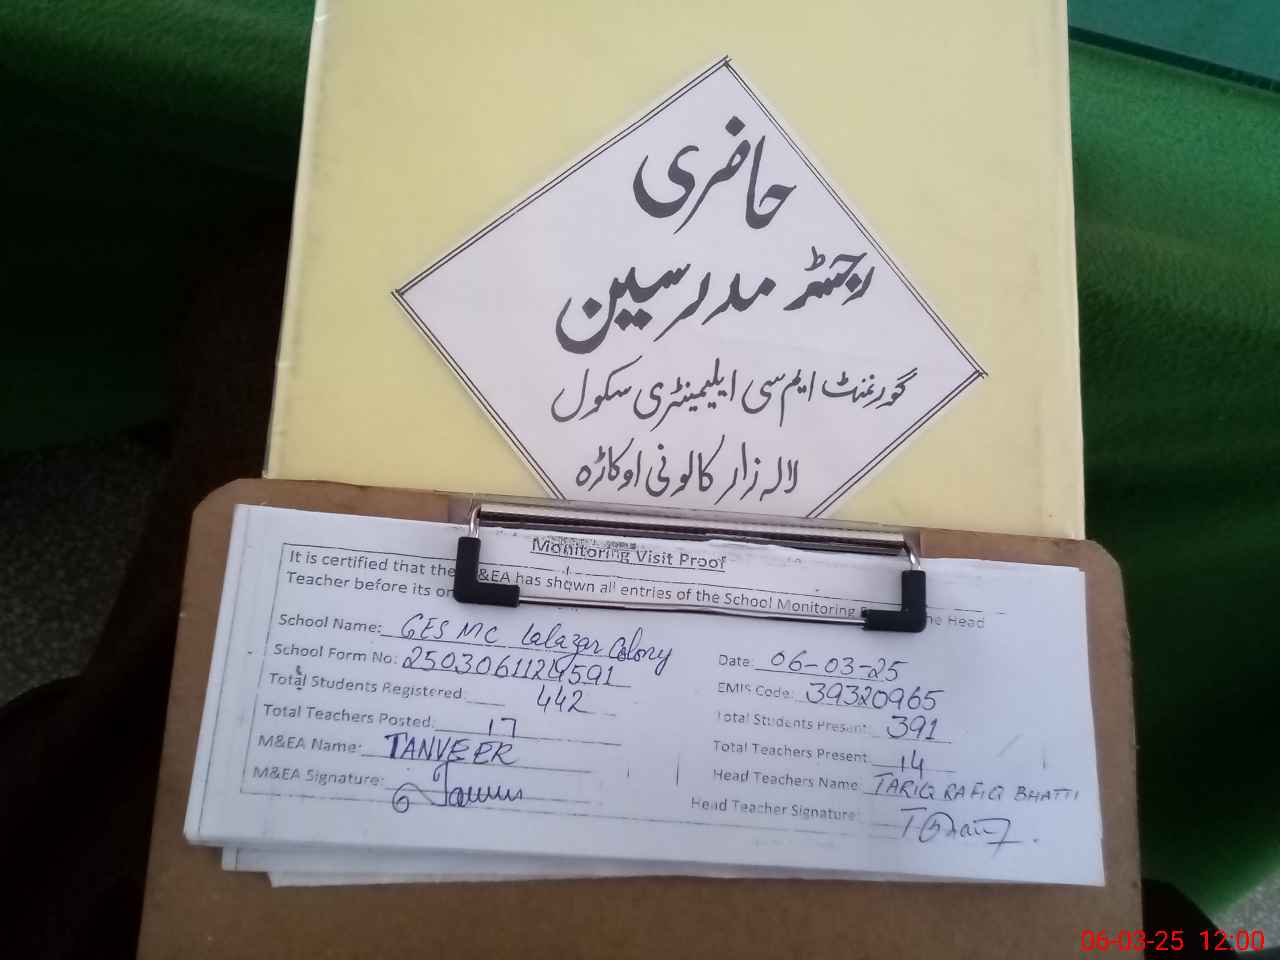 حاضری
رجسٹر مدرسین
گورنمنٹ ایم سی ایلیمینٹری سکول
لالہ زار کالونی اوکاڑہ
Monitoring Visit Proof
It is certified that the &EA has shown all entries of the School Monitoring he Head
Teacher before its
School Name: GES MC Lalazar Colony
Date: 06-03-25
School Form No:
EMIS Code: 39320965
Total Students Registered: 442
Total Students Present: 391
Total Teachers Posted: 17
Total Teachers Present: 14
M&EA Name: TANVEER
Head Teachers Name: TARIQ RAFIQ BHATTI
M&EA Signature:
Head Teacher Signature:
06-03-25 12:00